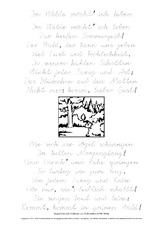 Im Walde möcht' ich leben
Zur heißen Sommerzeit!
Der Wald, der kann uns geben
viel Lust und Fröhlichkeit.
In seine kühlen Schatten
Winkt jeder Zweig und Ast;
Das Blümchen auf den Matten
Nickt mir: komm, lieber Gast!
Wie sich die Vögel schwingen
Im hellen Morgenglanz!
Und Hirsch' und Rehe springen
So lustig wie zum Tanz.
Von jedem Zweig und Reise
Hör nur, wie's lieblich schallt!
Sie singen laut und leise:
Kommt, kommt in grünen Wald!